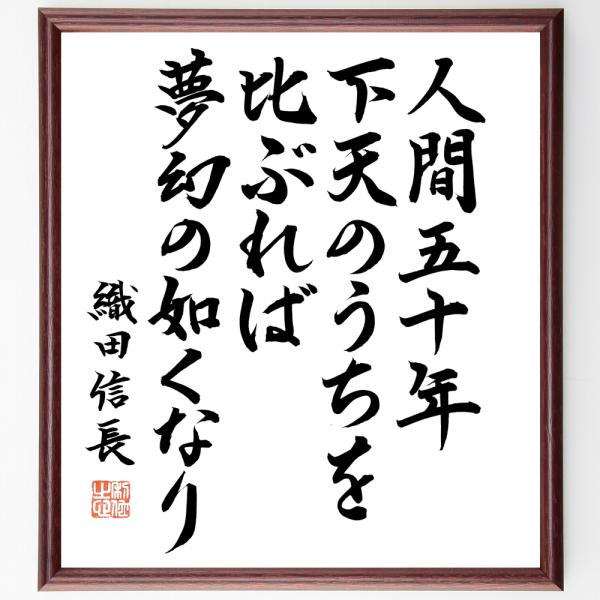 人間五十年
下天のうちを
比ぶれば
夢幻の如くなり
織田信長